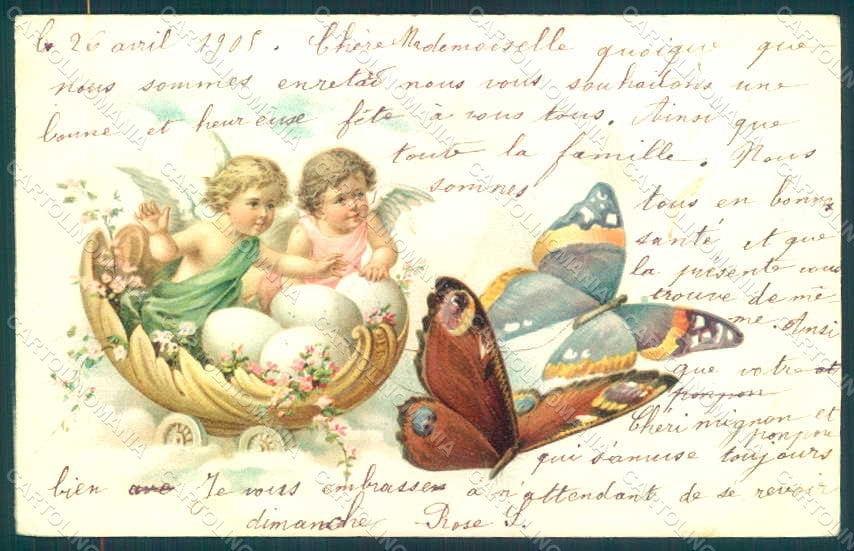 le 26 avril 1905. Chère Mademoiselle quoique que
nous sommes enretad nous vous souhaitons une
bonne et heureuse fête à vous tous. Ainsi que
toute la famille. Nous
sommes
tous en bonne
santé et que
la présente vous
trouve de mê
me. Ainsi
que votre et
ponpon
Chéri mignon et
ponpon
qui s'amuse toujours
bien ave Je vous embrasse à n'attendant de se revoir
dimanche Rose S.
CARTOLINOMANIA